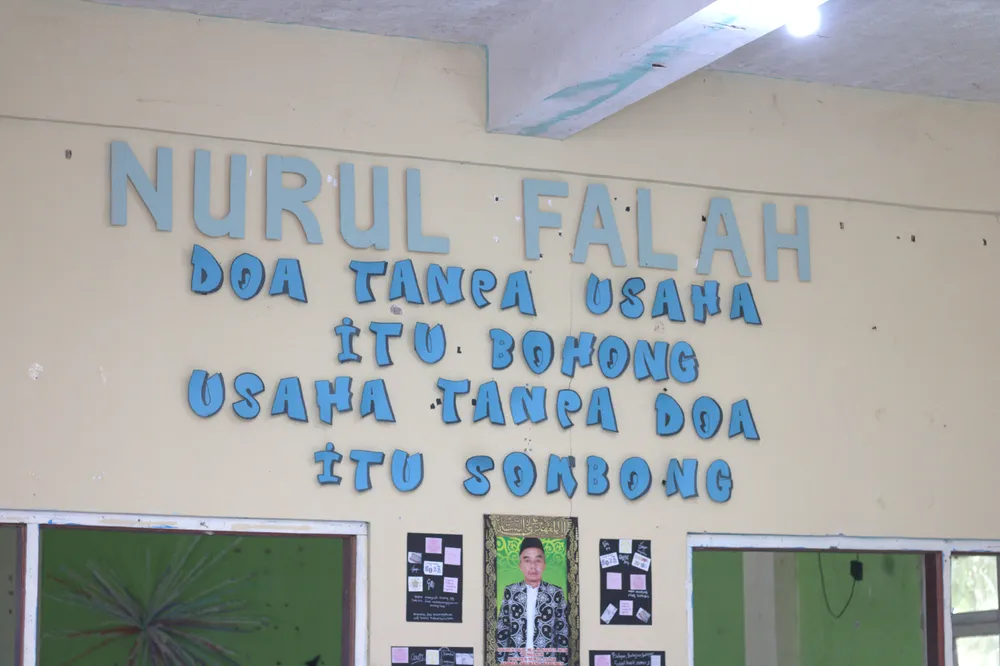 NURUL FALAH
DOA TANPA USAHA
İTU BOHONG
USAHA TANPA DOA
İTU SOMBONG